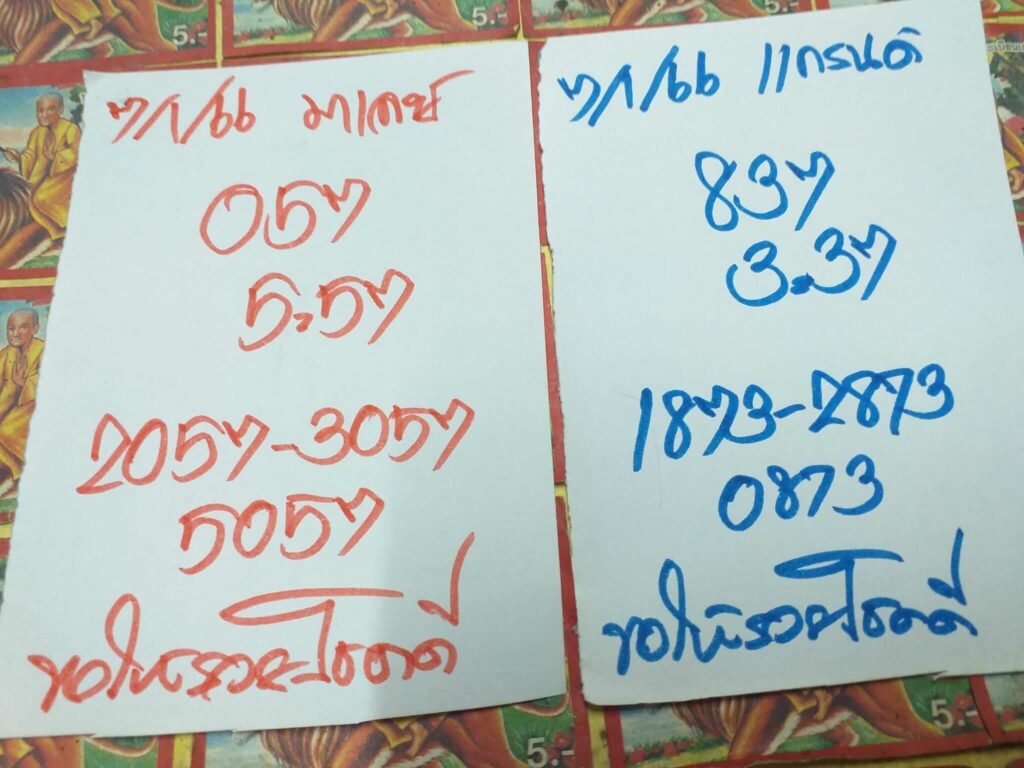 7/1/66 มาเลย์
057
5.57
2057-3057
5057
ขอให้รวยโชคดี
7/1/66 แกรนด์
837
3.37
1873-2873
0873
ขอให้รวยโชคดี
5.-
5.-
5.-
5.-
5.-